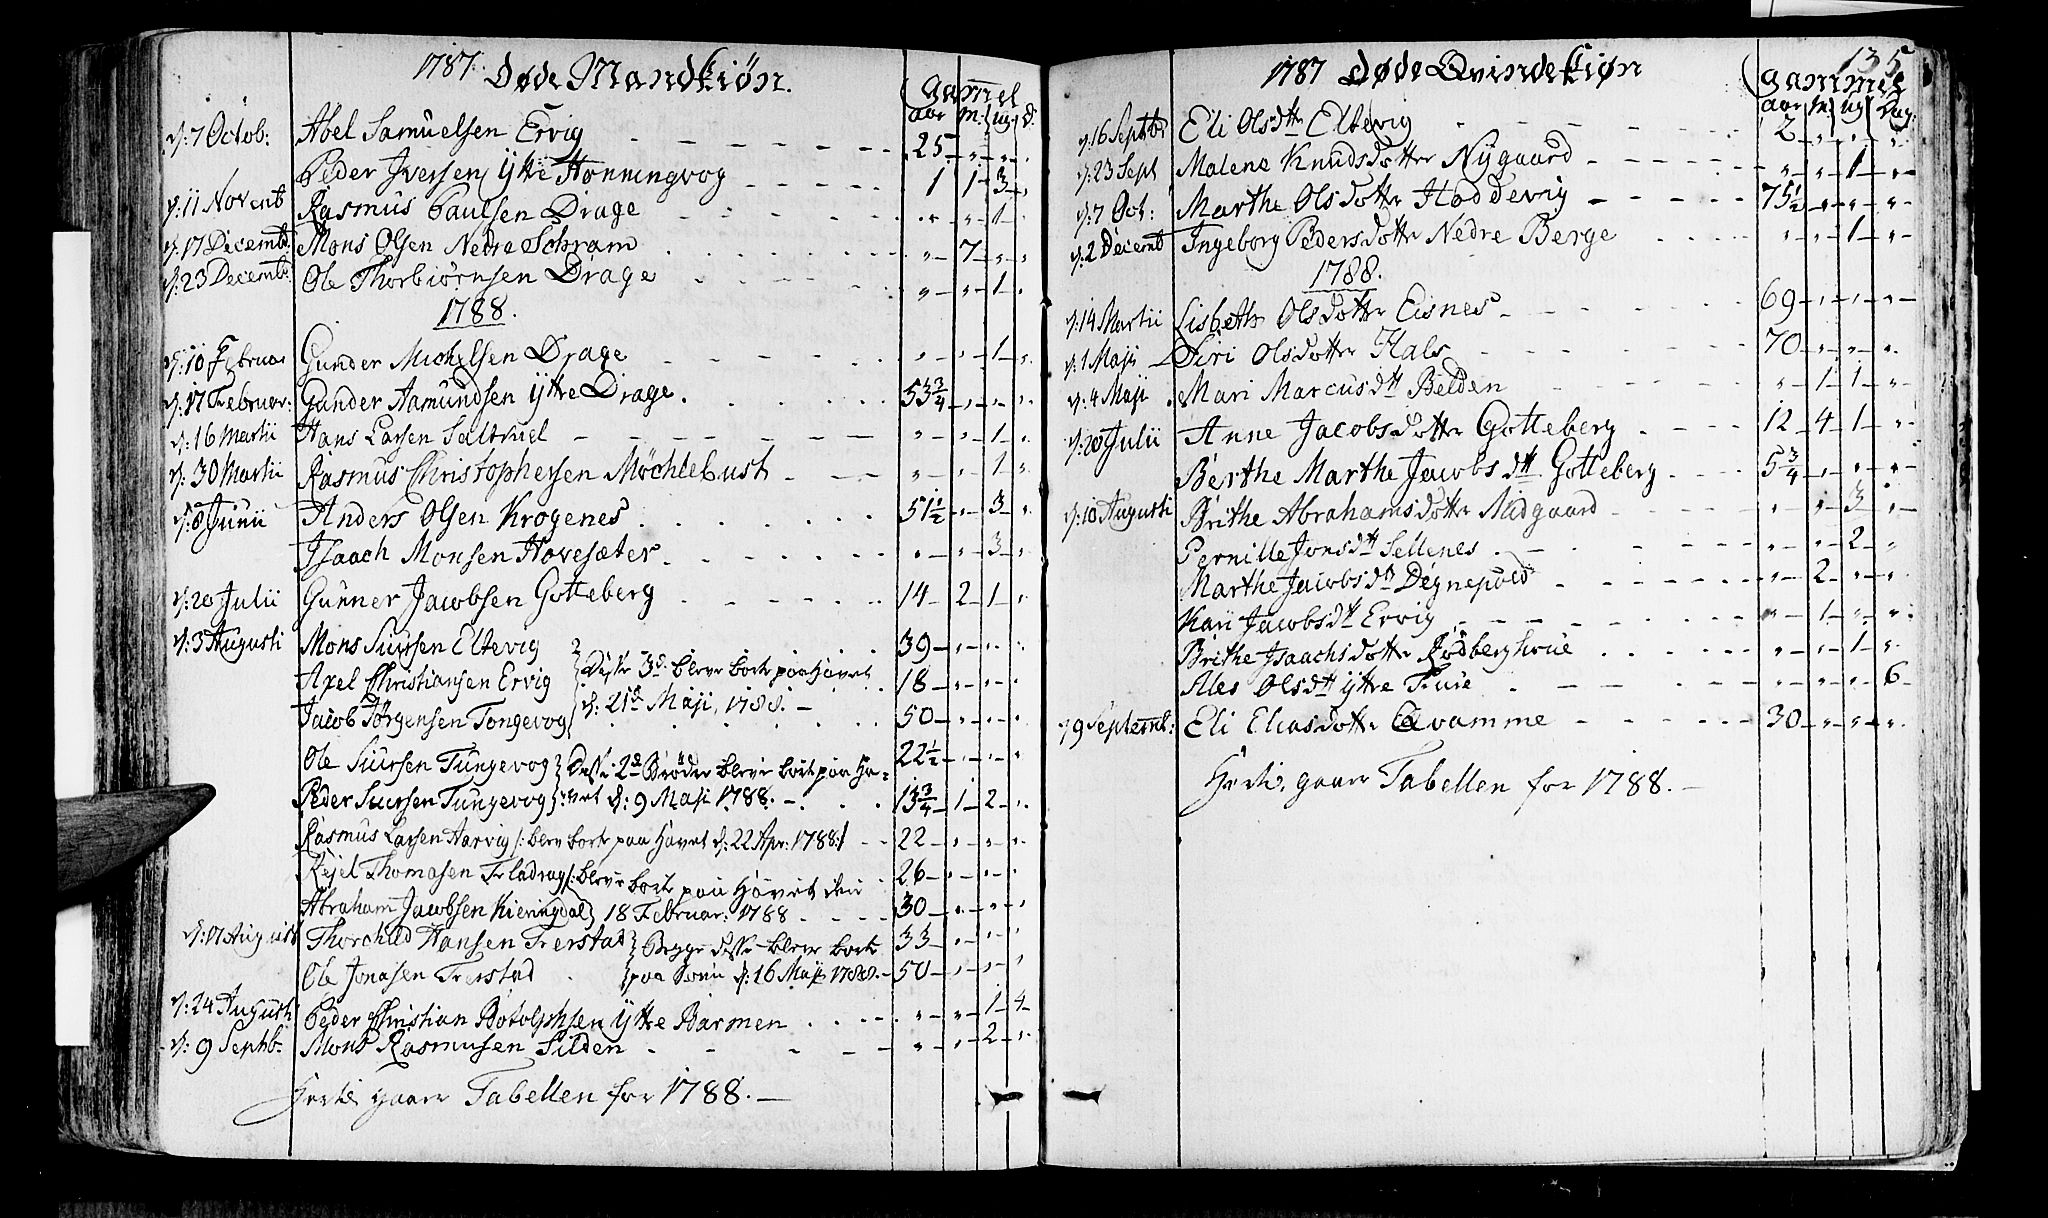 1787. Døde Mandkiøn.
Gamel
aar m: ug: d:
d: 7 Octob: Abel Samuelsen Ervig 25
Peder Iversen Ytre Honningvog 1 1 3
d: 11 Novemb Rasmus Paulsen Drage 1
d: 17 Decemb: Mons Olsen Nedre Schram 7
d: 23 Decemb: Ole Thorbiørnsen Drage 1
1788.
d: 10 Februar Gunder Michelsen Drage 1
d: 17 Februar: Gunder Aamundsen Ytre Drage 53 3/4
d: 16 Martii Hans Larsen Saltrud 1
d: 30 Martii Rasmus Christophersen Möchlebust 1
d: 8 Junii Anders Olsen Krogenes 51 1/2 3
Isaach Monsen Hovesæter 3
d: 20 Julii Gunner Jacobsen Gotteberg 14 2 1
d: 3 Augusti Mons Siursen Eltevig 39
Axel Christiansen Ervig } Disse 3de bleve bort paa Havet 18
Jacob Jørgensen Tongevog } d: 21de Maji, 1788. 50
Ole Siursen Tungevog } Disse 2de Brödre bleve bort paa Ha= 22 1/2
Peder Siursen Tungevog } vet d: 9 Maji 1788. 13 3/4 1 2
Rasmus Larsen Aarvig /: blev bort paa Havet d: 22 Apr: 1788:/ 22
Kejel Thomasen Fladrag /: bleve bort paa Havet den 26
Abraham Jacobsen Kieringdal } 18 Februar: 1788 30
d: 17 Augusti Thorchild Hansen Frerstad } Begge disse bleve bort 33
Ole Jonasen Frerstad } paa Søen d: 16 Maji 1788. 50
d: 24 Augusti Peder Christian Botolphsen Ytre Barmen 1 4
d: 9 Sephb: Mons Rasmusen Silden 2
Hertil gaaer Tabellen for 1788.
135
1787 Døde Qvindekiøn
Gammel
aar m: ug Dag:
d: 16 Septbr Eli Olsdtr Eltevig 2
d: 23 Sept Malene Knudsdotter Nygaard 1
d: 7 Oct: Marthe Olsdotter Hoddevig 75 1/2
d: 2 Decemb Ingeborg Pedersdotter Nedre Berge 1
1788.
d: 14 Martii Lisbeth Olsdotter Eisnes 69
d: 1 Maji Siri Olsdotter Hals 70
d: 4 Maji Mari Marcusdtr Belden 1 1
d: 20 Julii Anne Jacobsdotter Gotteberg 12 4 1
Berthe Marthe Jacobsdtr Gotteberg 5 3/4
d: 10 Augusti Brithe Abrahamsdotter Midgaard 3
Pernille Jonsdtr Sellenes 2
Marthe Jacobsdtr Degnepold 2
Kari Jacobsdtr Ervig 1
Brithe Isaachsdotter Rødberghoue 1
Ales Olsdtr Ytre Frue 6
d 9 Septemb: Eli Eliasdotter Qvamme 30
Hertil gaaer Tabellen for 1788.